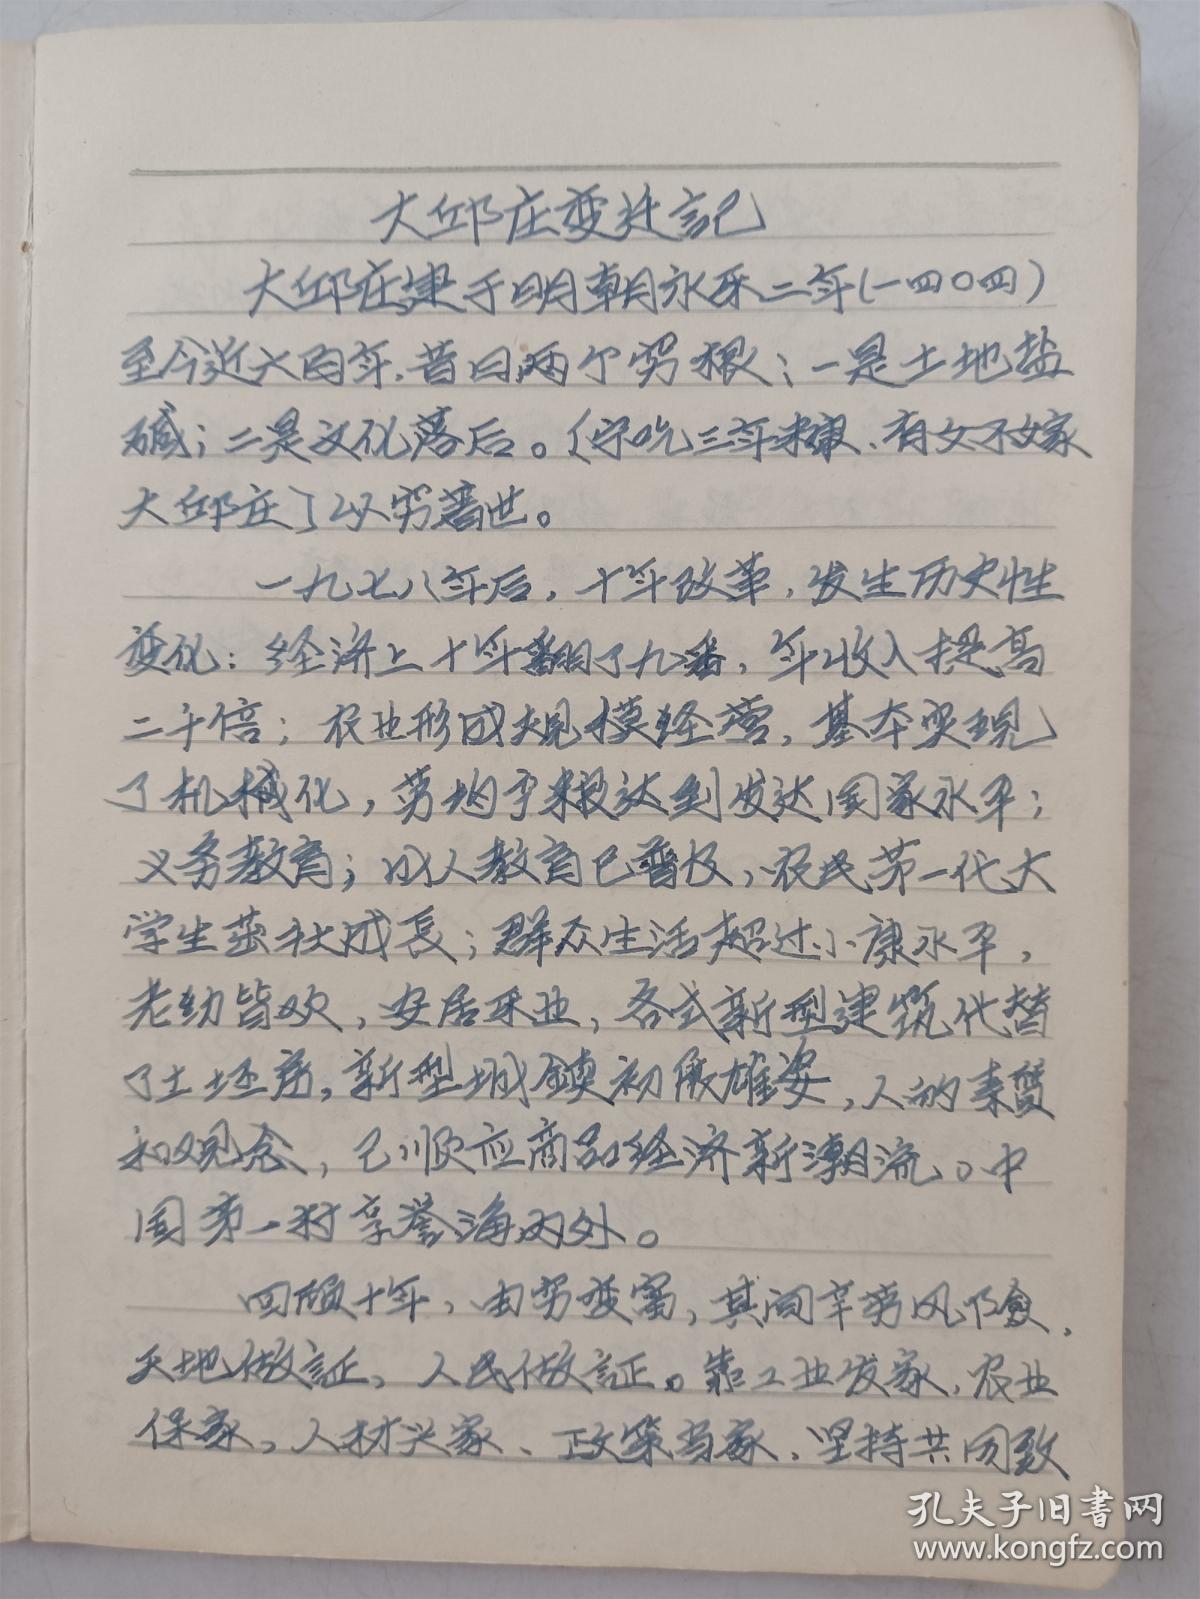 大邱庄变迁記
大邱庄建于明朝永乐二年(一四〇四)
至今近六百年.昔日两个穷根：一是土地盐
碱；二是文化落后。(宁吃三年糠、有女不嫁
大邱庄)以穷著世。
一九七八年后，十年改革，发生历史性
变化：经济上十年翻了九番，年收入提高
二千倍；农业形成规模经营，基本实现
了机械化，劳均产粮达到发达国家水平；
义务教育；成人教育已普及，农民第一代大
学生茁壮成長；群众生活超过小康水平，
老幼皆欢，安居乐业，各式新型建筑代替
了土坯房，新型城鎮初展雄姿，人的素質
和观念，已顺应商品经济新潮流。中
国第一村享誉海内外。
回顾十年，由穷变富，其间辛劳风险，
天地做証，人民做証。靠工业发家，农业
保家，人材兴家、政策当家，坚持共同致
孔夫子旧书网
www.kongfz.com